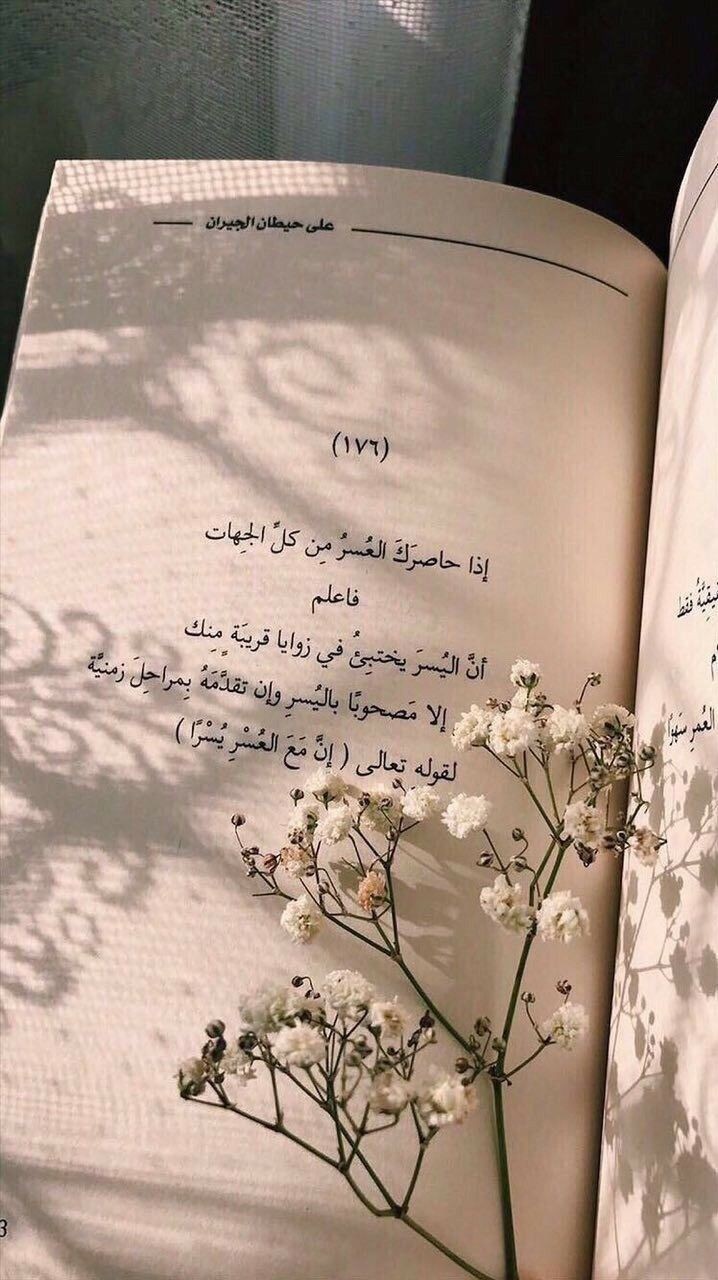 على حيطان الجيران
(١٧٦)
إذا حاصرَكَ العُسرُ مِن كلِّ الجِهات
فاعلم
أنَّ اليُسرَ يختبِئُ في زوايا قريبَة مِنك
إلا مَصحوبًا باليُسرِ وإن تقدَّمَهُ بِمراحِلَ زمنيَّة
لقوله تعالى ( إنَّ مَعَ العُسْرِ يُسْرًا )
فقط
العُمرِ سَهوًا
3